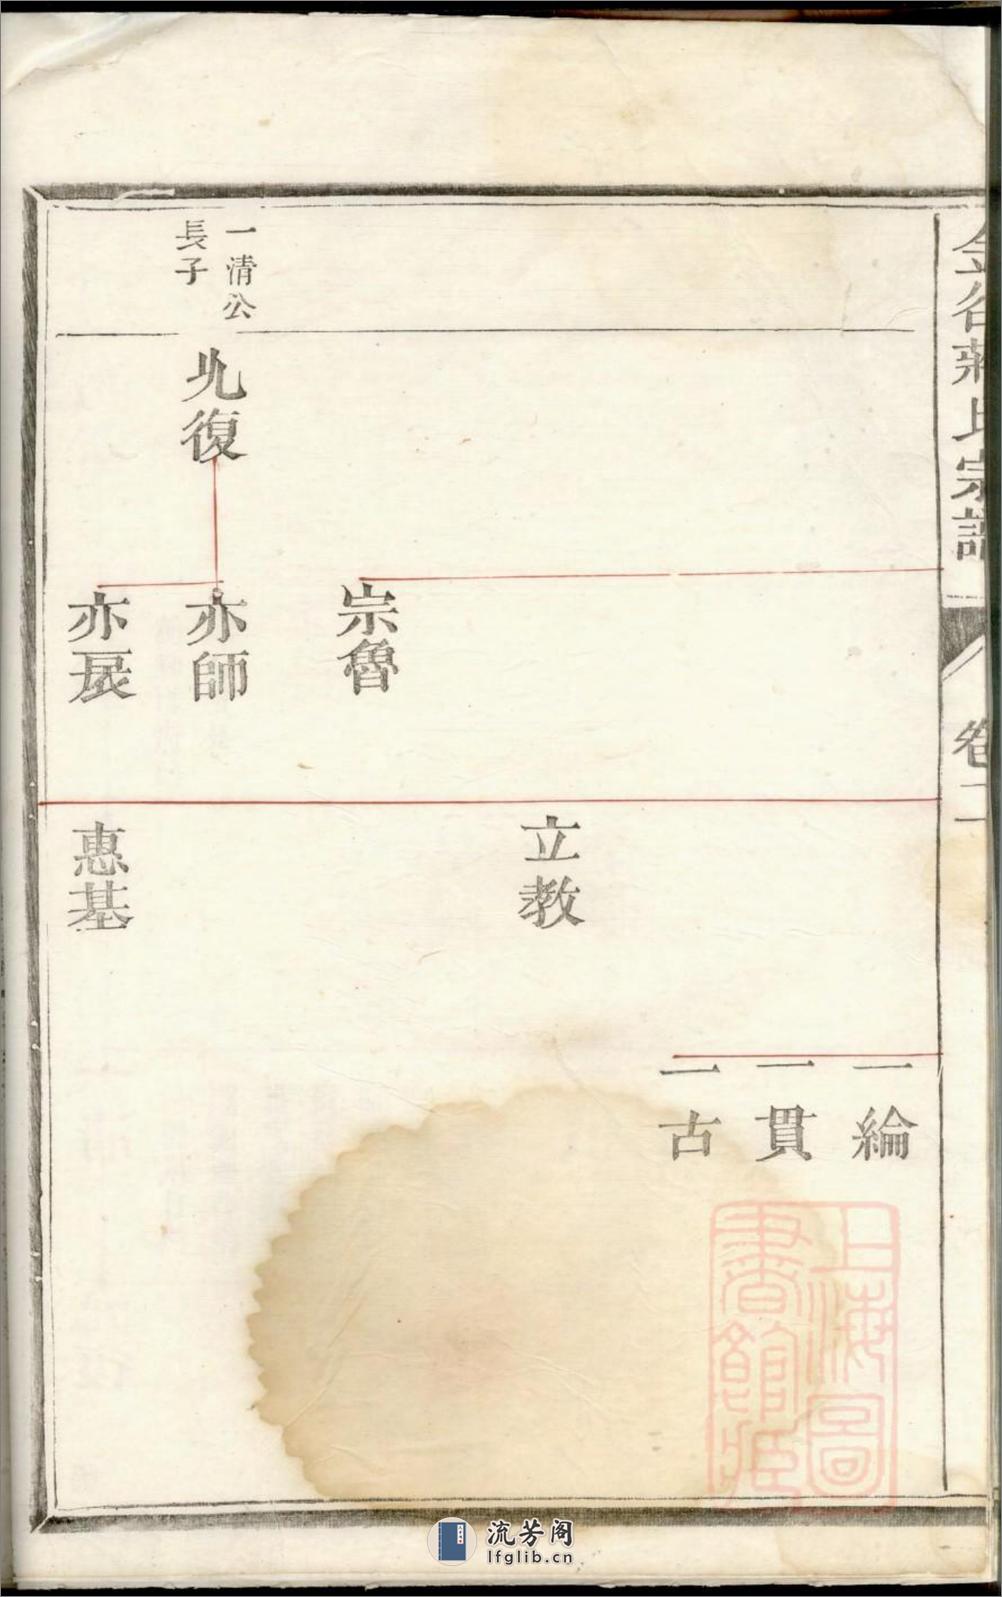 金谷蔣氏宗譜
卷二
一清公
長子
允復
宗魯
亦師
亦展
立教
惠基
一綸
一貫
一古
上海圖
書館臧
流芳阁
lfglib.cn